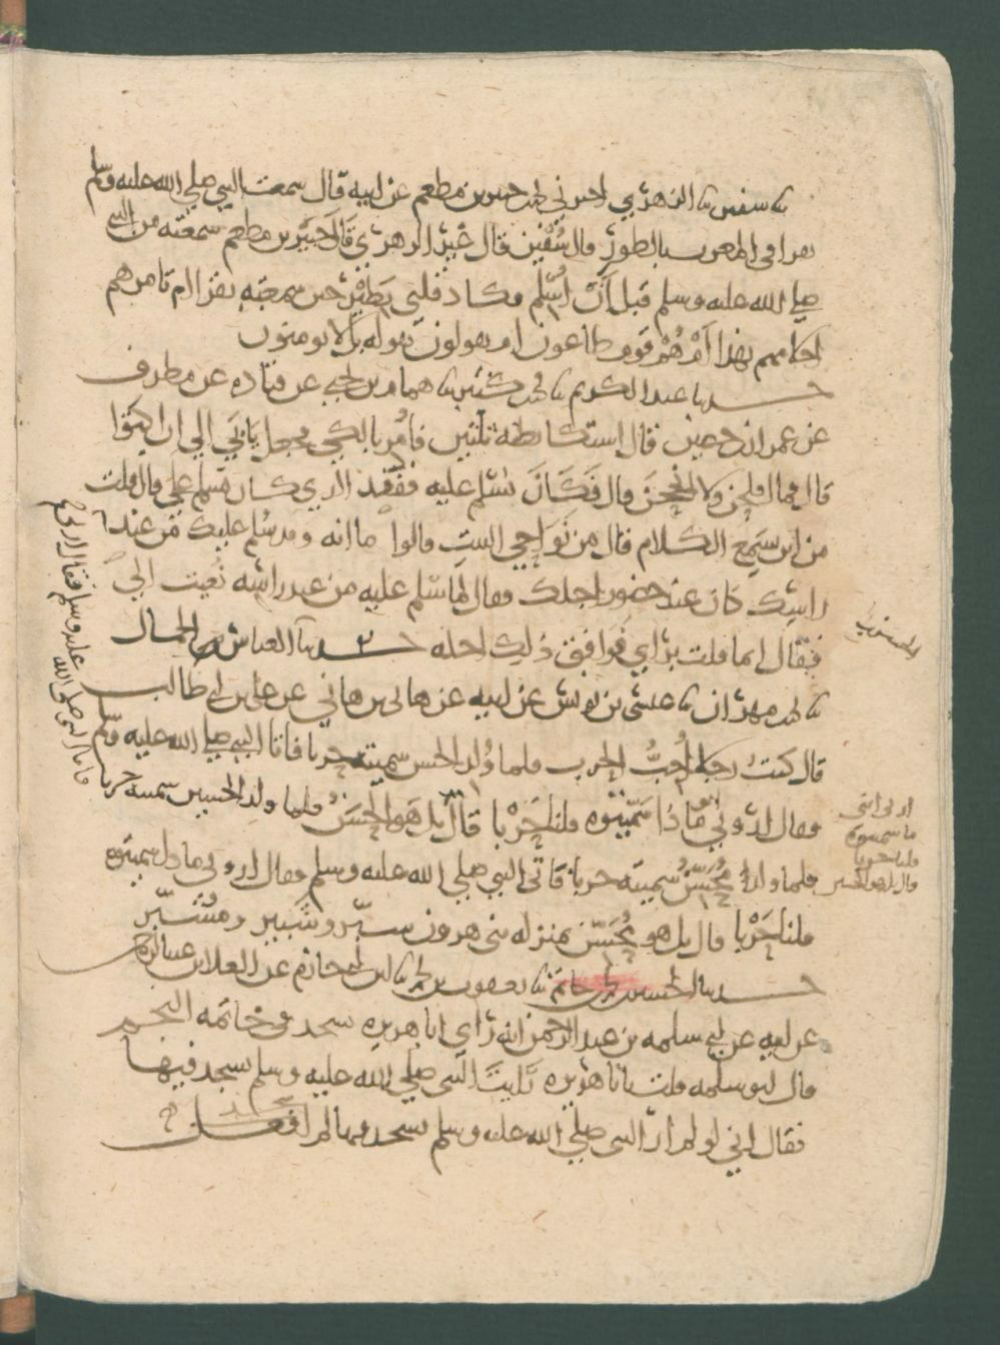 نا سفين نا الزهري اخبرني محمد بن جبير بن مطعم عن ابيه قال سمعت النبي صلي الله عليه وسلم
يقرا في المغرب بالطور قال سفين قال غير الزهري قال جبير بن مطعم سمعته من النبي
صلي الله عليه وسلم قبل ان اسلم وكاد قلبي يطير حين سمعته يقرا ام تامرهم
احلامهم بهذا ام هم قوم طاغون ام يقولون تقوله بل لا يومنون
حدثنا عبد الكريم نا محمد بن كثير نا همام بن يحيي عن قتاده عن مطرف
عن عمران بن حصين قال استسقا بطنه ثلثين فامر بالكي فجعل يابي الي ان اكتوا
قال فما افلحن ولا انجحن قال فكان يسلم عليه ففقد الذي كان يسلم علي قال قلت
من اين سمع الكلام قال من نواحي البيت قالوا اما انه وقد سلم عليك من عند
راسك كان عند حضور اجلك فقال لما سلم عليه من عند راسه بعيت الي
فقال انما قلت براي فوافق ذلك اجله حدثنا العباس الحمال
نا محمد مهران نا عيسى بن يونس عن ابيه عن هاني بن هاني عن علي بن ابي طالب
قال كنت رجلا احب الحرب فلما ولد الحسن سميته حربا فاتا النبي صلي الله عليه وسلم
فقال اروني ابني ما ذا سميتوه قلنا حربا قال بل هو الحسن فلما ولد الحسين سميته حربا
فلما ولد محسن سميته حربا فاتى النبي صلي الله عليه وسلم فقال اروني ما ذا سميتوه
قلنا حربا قال بل هو محسن بمنزله بني هرون شبر وشبير ومشبر
حدثنا الحسين بن حاتم نا يعقوب بن محمد نا ابن ابي حازم عن العلا بن عبد الرحمن
عن ابيه عن ابي سلمه بن عبد الرحمن انه راي ابا هريره سجد في خاتمه النجم
قال ابو سلمه قلت يابا هريره رايت النبي صلي الله عليه وسلم سجد فيها
فقال اني لو لم ار النبي صلي الله عليه وسلم يسجد فيها لم افعل
فاتا النبي صلى الله عليه وسلم فقال اروني
اروني ابني
ما سميتوه
قلنا حربا
قال بل هو الحسين